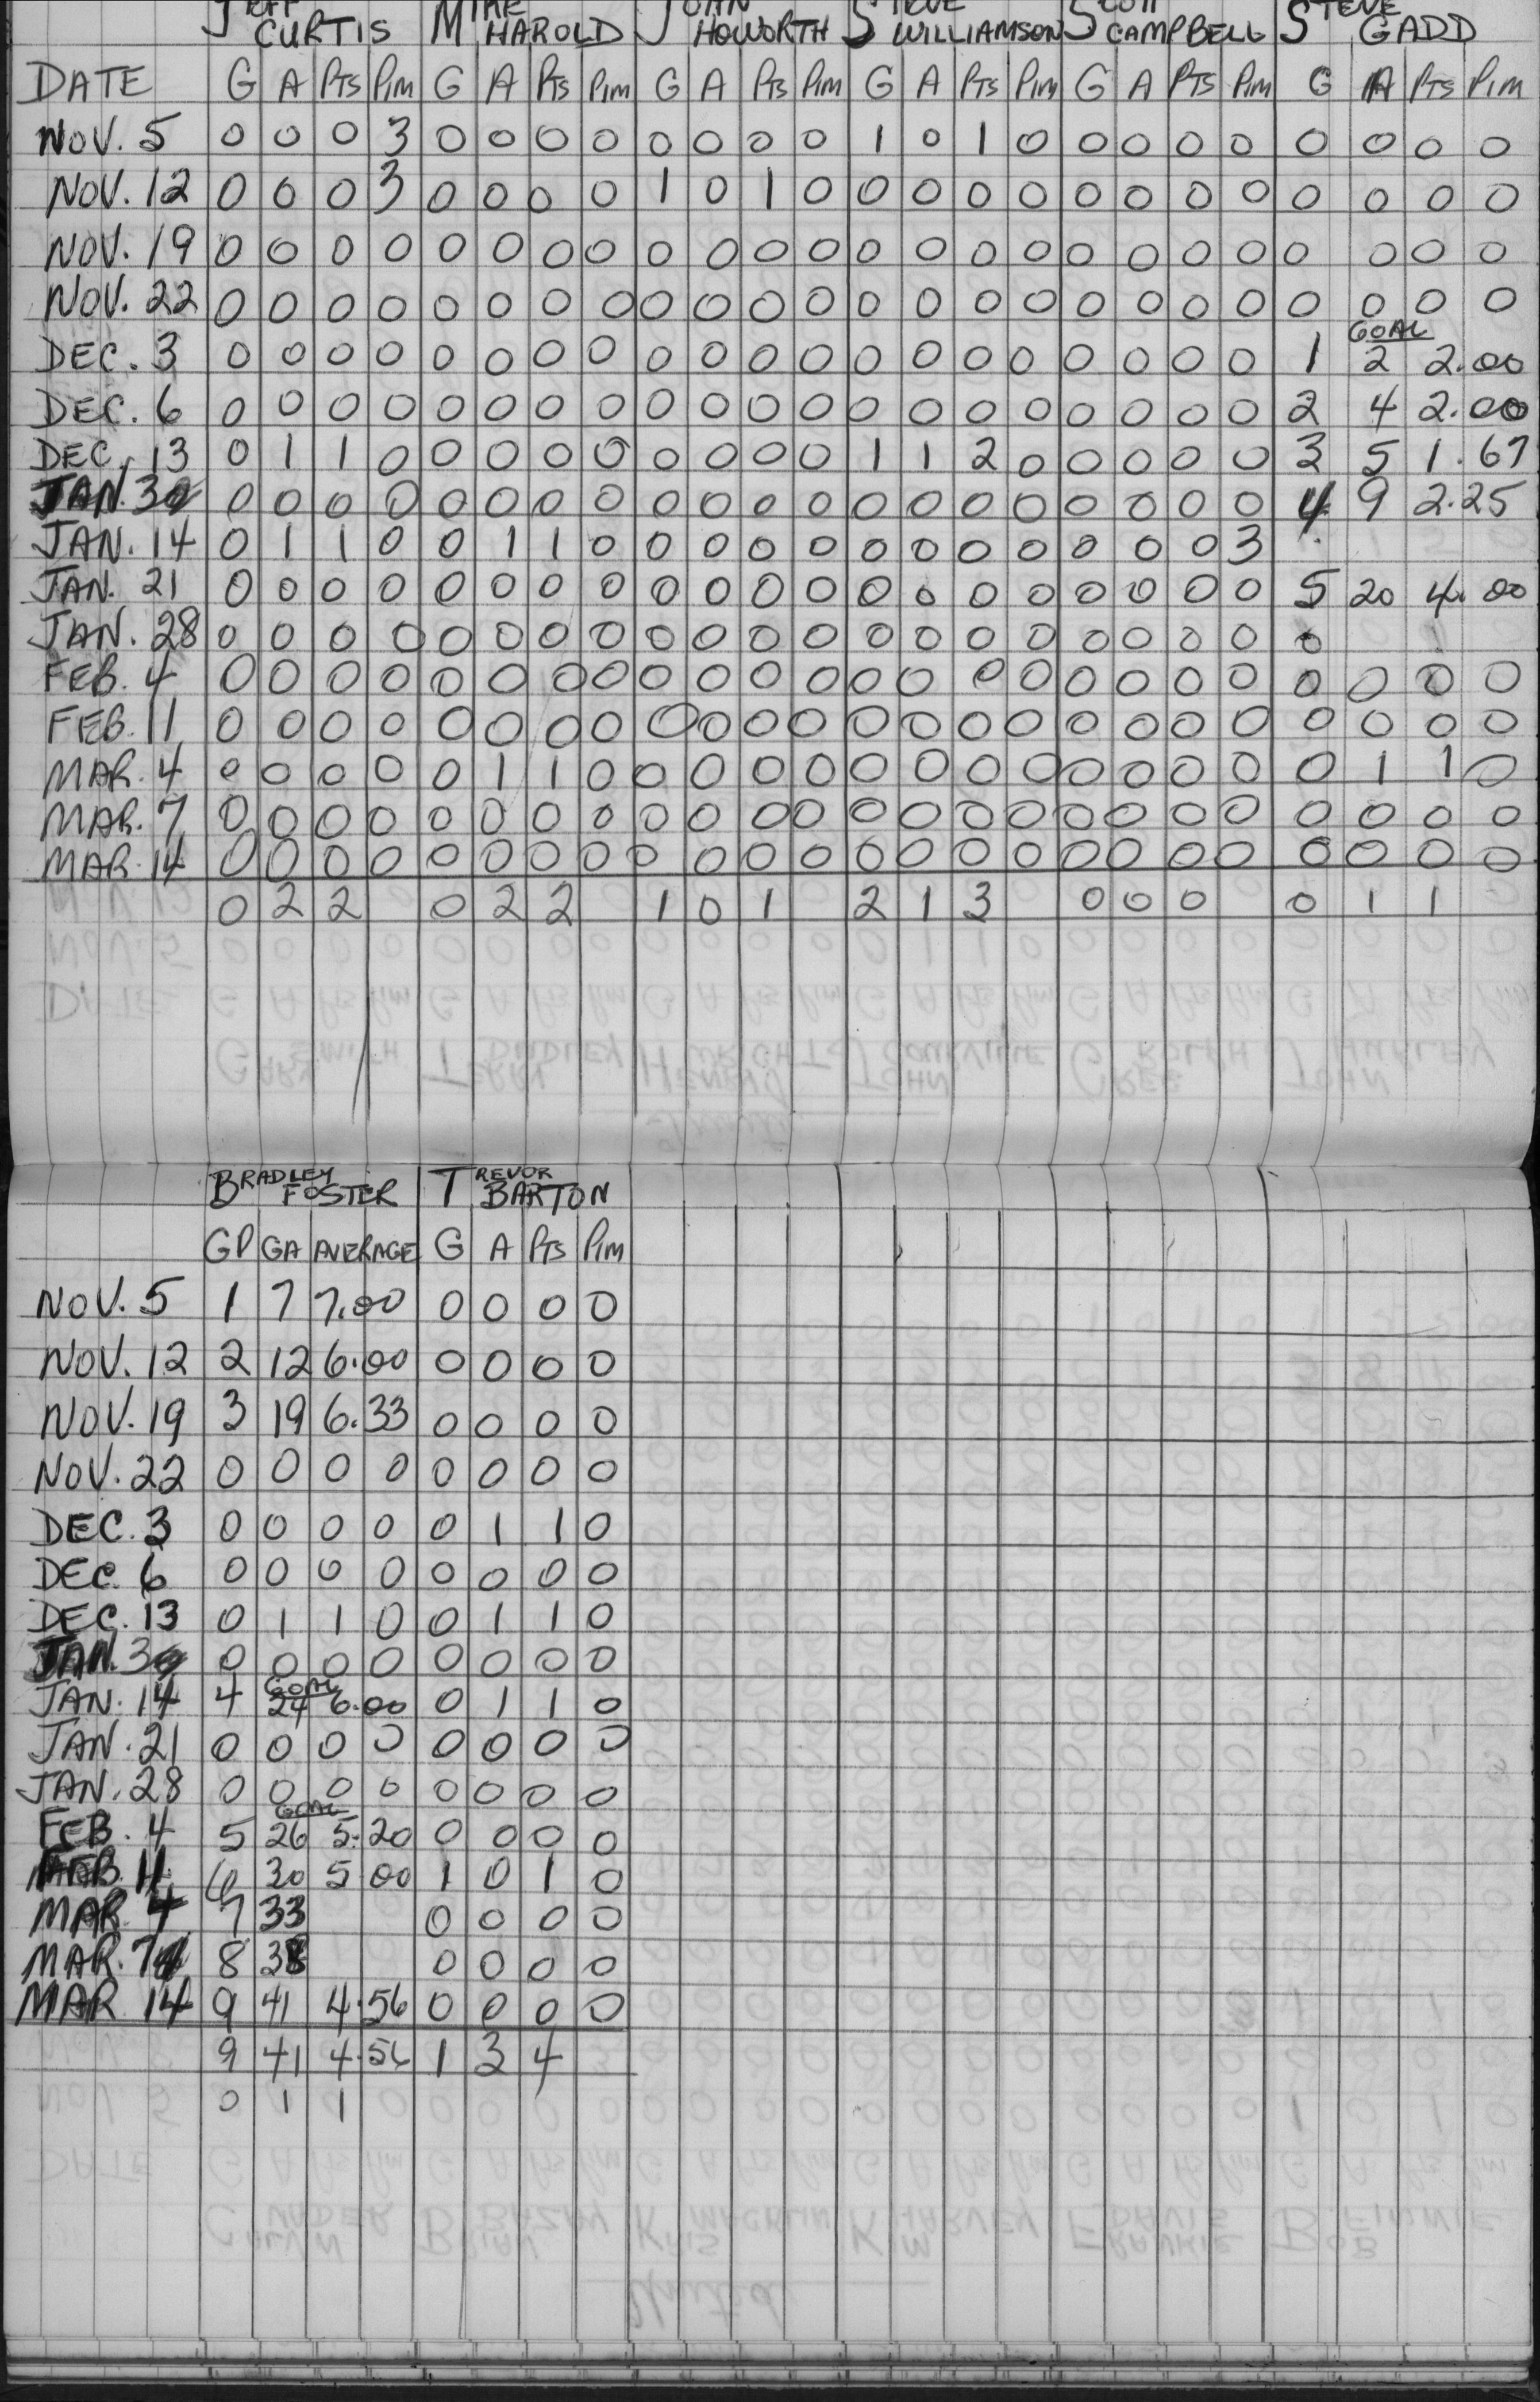 JEFF MIKE JOHN STEVE SCOTT STEVE
CURTIS HAROLD HOWORTH WILLIAMSON CAMPBELL GADD
DATE G A PTS PIM G A PTS PIM G A PTS PIM G A PTS PIM G A PTS PIM G A PTS PIM
NOV. 5 0 0 0 3 0 0 0 0 0 0 0 0 1 0 1 0 0 0 0 0 0 0 0 0
NOV. 12 0 0 0 3 0 0 0 0 1 0 1 0 0 0 0 0 0 0 0 0 0 0 0 0
NOV. 19 0 0 0 0 0 0 0 0 0 0 0 0 0 0 0 0 0 0 0 0 0 0 0 0
NOV. 22 0 0 0 0 0 0 0 0 0 0 0 0 0 0 0 0 0 0 0 0 0 0 0 0
GOAL
DEC. 3 0 0 0 0 0 0 0 0 0 0 0 0 0 0 0 0 0 0 0 0 1 2 2.00
DEC. 6 0 0 0 0 0 0 0 0 0 0 0 0 0 0 0 0 0 0 0 0 2 4 2.00
DEC. 13 0 1 1 0 0 0 0 0 0 0 0 0 1 1 2 0 0 0 0 0 3 5 1.67
JAN. 3 0 0 0 0 0 0 0 0 0 0 0 0 0 0 0 0 0 0 0 0 4 9 2.25
JAN. 14 0 1 1 0 0 1 1 0 0 0 0 0 0 0 0 0 0 0 0 3
JAN. 21 0 0 0 0 0 0 0 0 0 0 0 0 0 0 0 0 0 0 0 0 5 20 4.00
JAN. 28 0 0 0 0 0 0 0 0 0 0 0 0 0 0 0 0 0 0 0 0 0
FEB. 4 0 0 0 0 0 0 0 0 0 0 0 0 0 0 0 0 0 0 0 0 0 0 0 0
FEB. 11 0 0 0 0 0 0 0 0 0 0 0 0 0 0 0 0 0 0 0 0 0 0 0 0
MAR. 4 0 0 0 0 0 1 1 0 0 0 0 0 0 0 0 0 0 0 0 0 0 1 1 0
MAR. 7 0 0 0 0 0 0 0 0 0 0 0 0 0 0 0 0 0 0 0 0 0 0 0 0
MAR. 14 0 0 0 0 0 0 0 0 0 0 0 0 0 0 0 0 0 0 0 0 0 0 0 0
0 2 2 0 2 2 1 0 1 2 1 3 0 0 0 0 1 1
BRADLEY TREVOR
FOSTER BARTON
GP GA AVERAGE G A PTS PIM
NOV. 5 1 7 7.00 0 0 0 0
NOV. 12 2 12 6.00 0 0 0 0
NOV. 19 3 19 6.33 0 0 0 0
NOV. 22 0 0 0 0 0 0 0 0
DEC. 3 0 0 0 0 0 1 1 0
DEC. 6 0 0 0 0 0 0 0 0
DEC. 13 0 1 1 0 0 1 1 0
JAN. 3 0 0 0 0 0 0 0 0
GOAL
JAN. 14 4 24 6.00 0 1 1 0
JAN. 21 0 0 0 0 0 0 0 0
JAN. 28 0 0 0 0 0 0 0 0
GOAL
FEB. 4 5 26 5.20 0 0 0 0
FEB. 11 6 30 5 00 1 0 1 0
MAR 4 7 33 0 0 0 0
MAR. 7 8 38 0 0 0 0
MAR 14 9 41 4.56 0 0 0 0
9 41 4.56 1 3 4
0 1 1